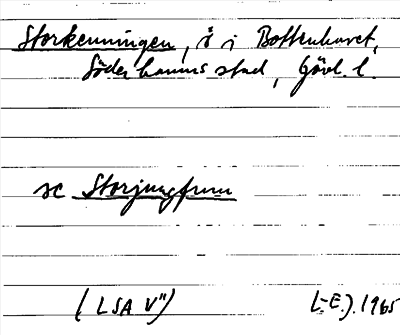 Storkenningen, ö i Bottenhavet,
Söderhamns stad, Gävl. l.
se Storjungfrun
(LSA V")
L-E. J. 1965